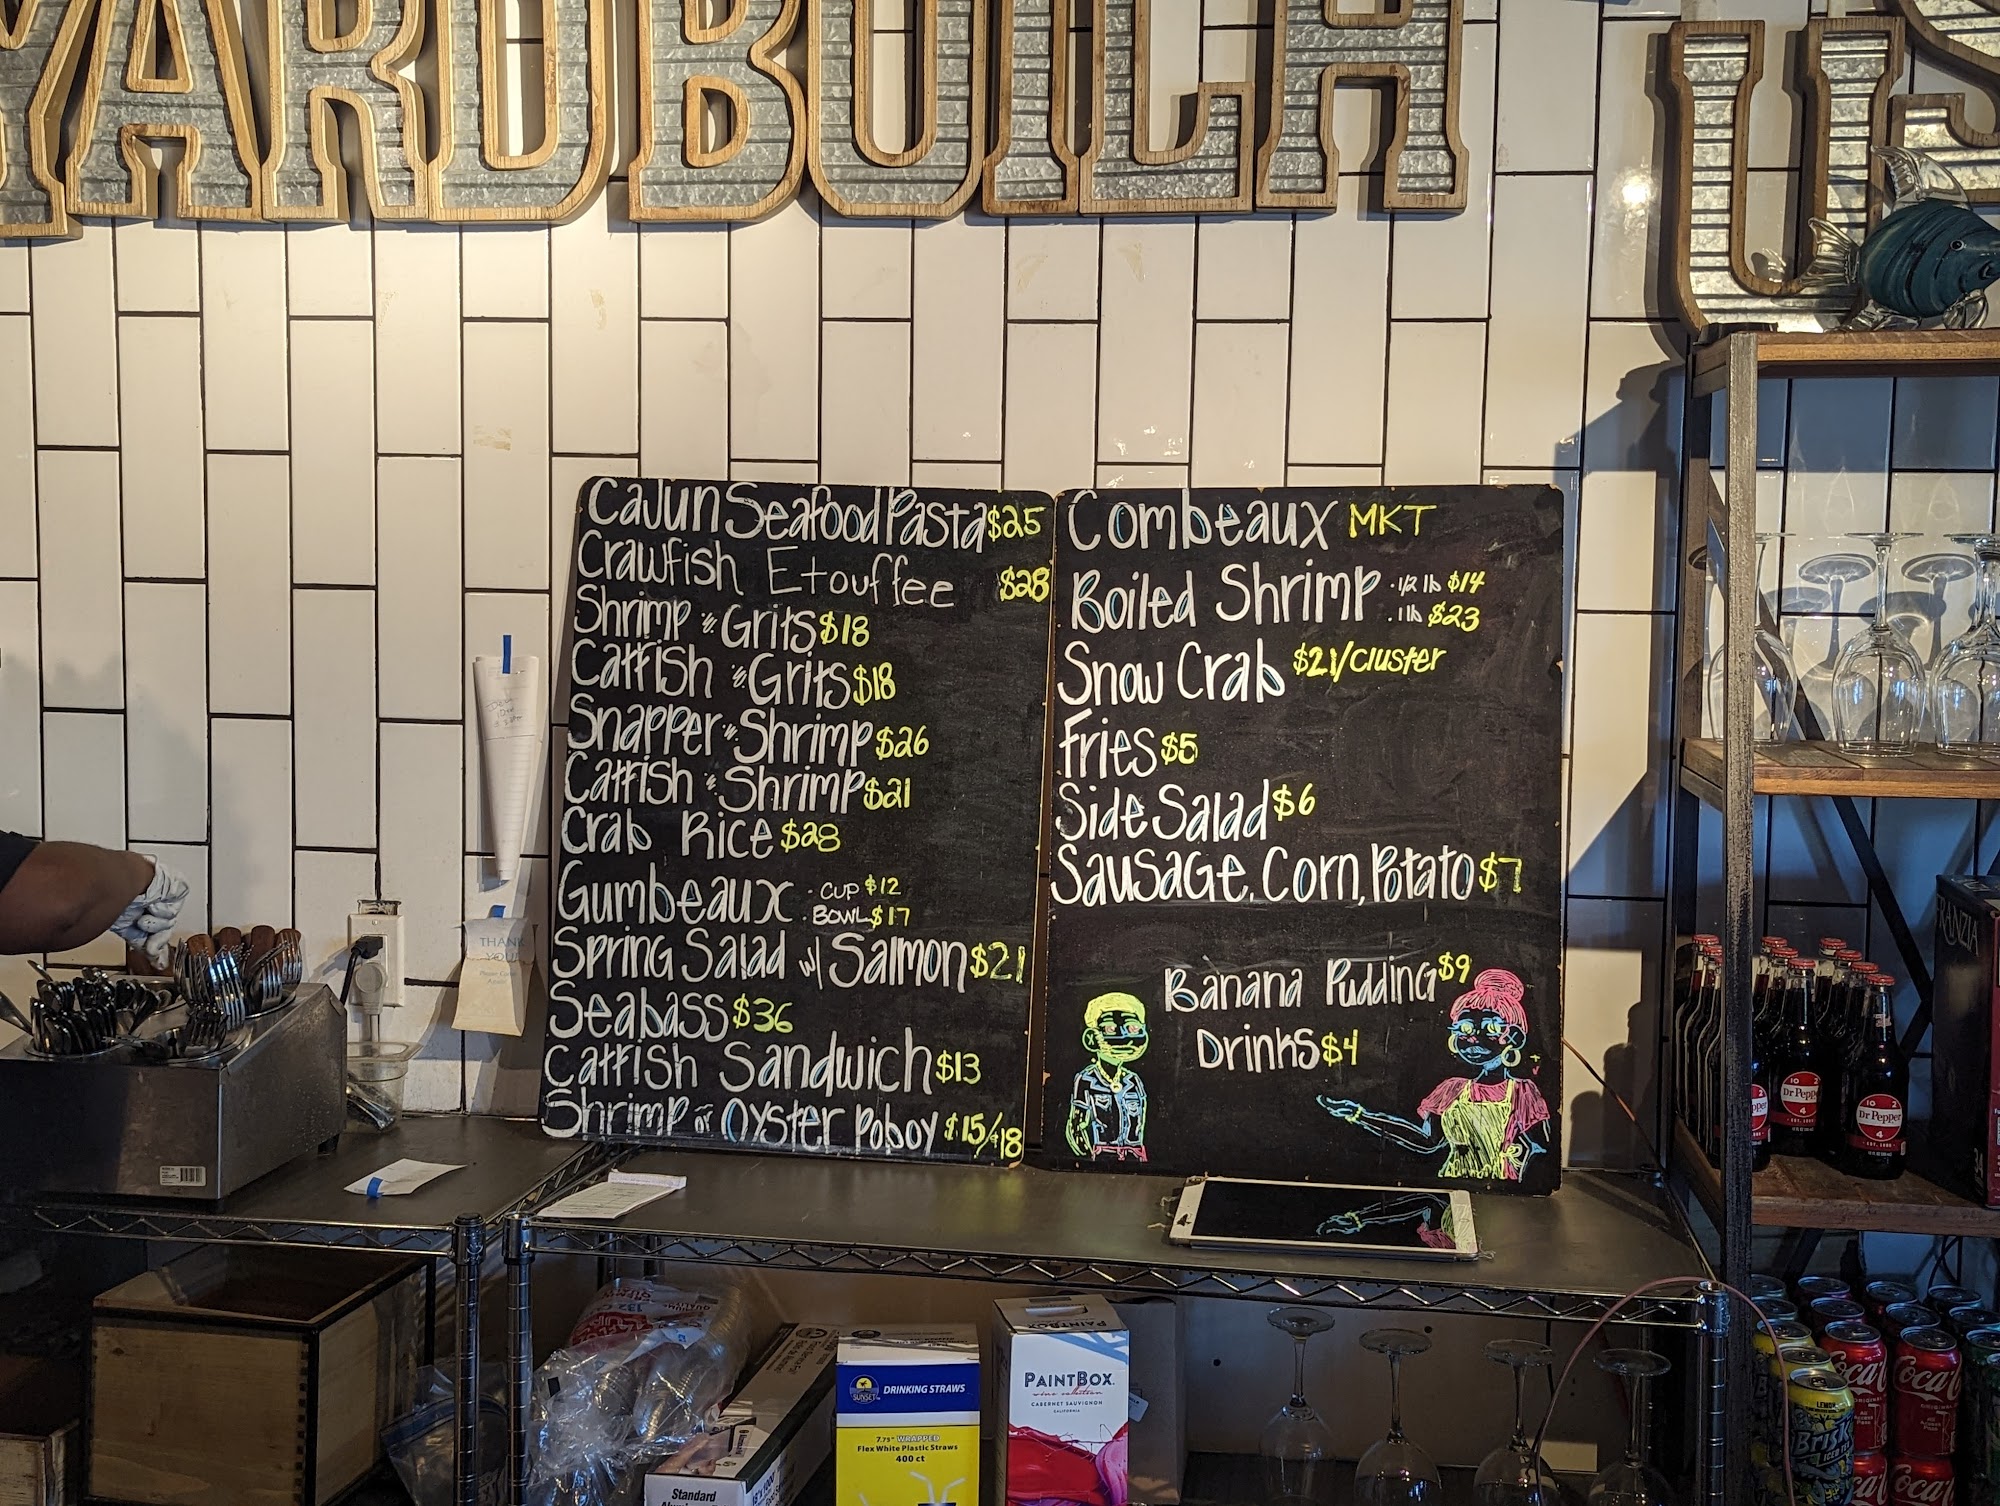 YARDBUILA
US
Cajun Seafood Pasta $25
Crawfish Etouffee $28
Shrimp & Grits $18
Catfish & Grits $18
Snapper & Shrimp $26
Catfish & Shrimp $21
Crab Rice $28
Gumbeaux · Cup $12
· Bowl $17
Spring Salad w/ Salmon $21
Seabass $36
Catfish Sandwich $13
Shrimp or Oyster Poboy $15/$18
Combeaux MKT
Boiled Shrimp · 1/2 lb $14
· 1 lb $23
Snow Crab $21/Cluster
Fries $5
Side Salad $6
Sausage, Corn, Potato $7
Banana Pudding $9
Drinks $4
THANK
YOU
Please Come
Again
FRANZIA
10 2
Dr Pepper
4
10 2
Dr Pepper
4
Dr Pepper
SUNSET
DRINKING STRAWS
7.75" WRAPPED
Flex White Plastic Straws
400 ct
PAINTBOX
PAINTBOX
wine selection
CABERNET SAUVIGNON
CALIFORNIA
Standard
Coca
Coca
Coca
Coca
LEMON
Brisk
ICED TEA